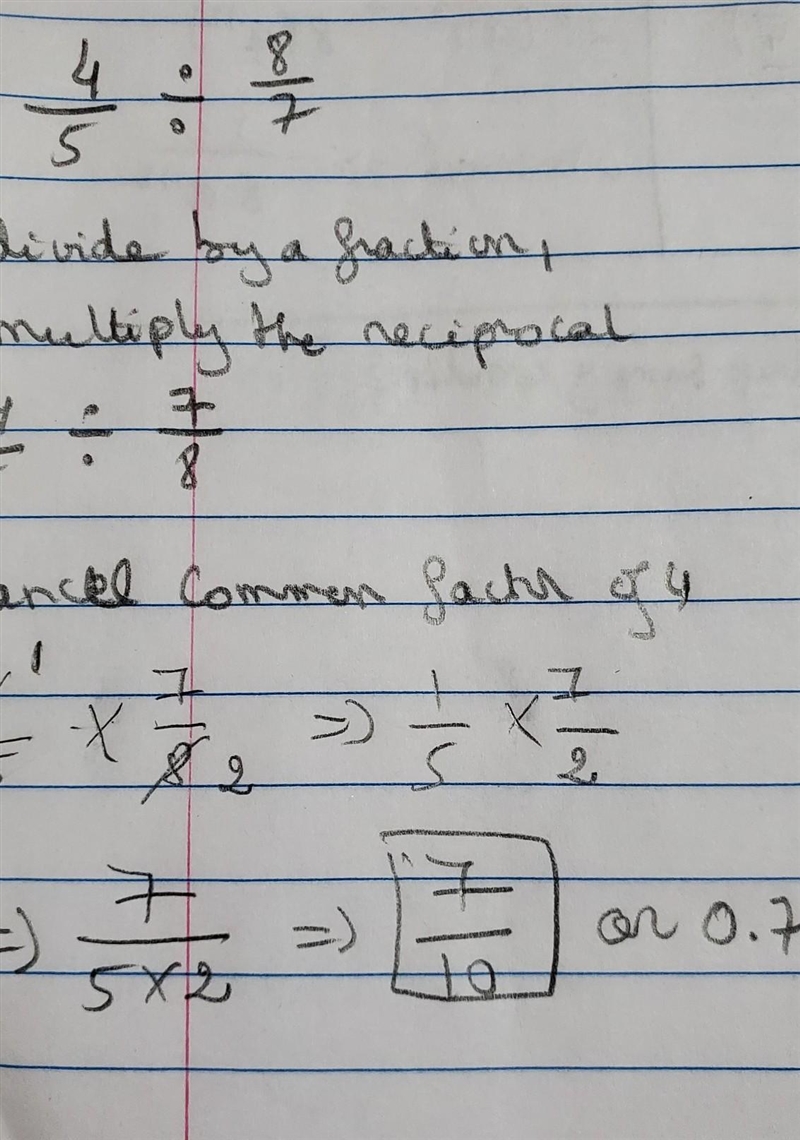 4/5 ÷ 8/7
divide by a fraction,
multiply the reciprocal
÷ 7/8
ancel Common factor of 4
1 × 7/8 2 => 1/5 × 7/2
=> 7/(5×2) => 7/10 or 0.7